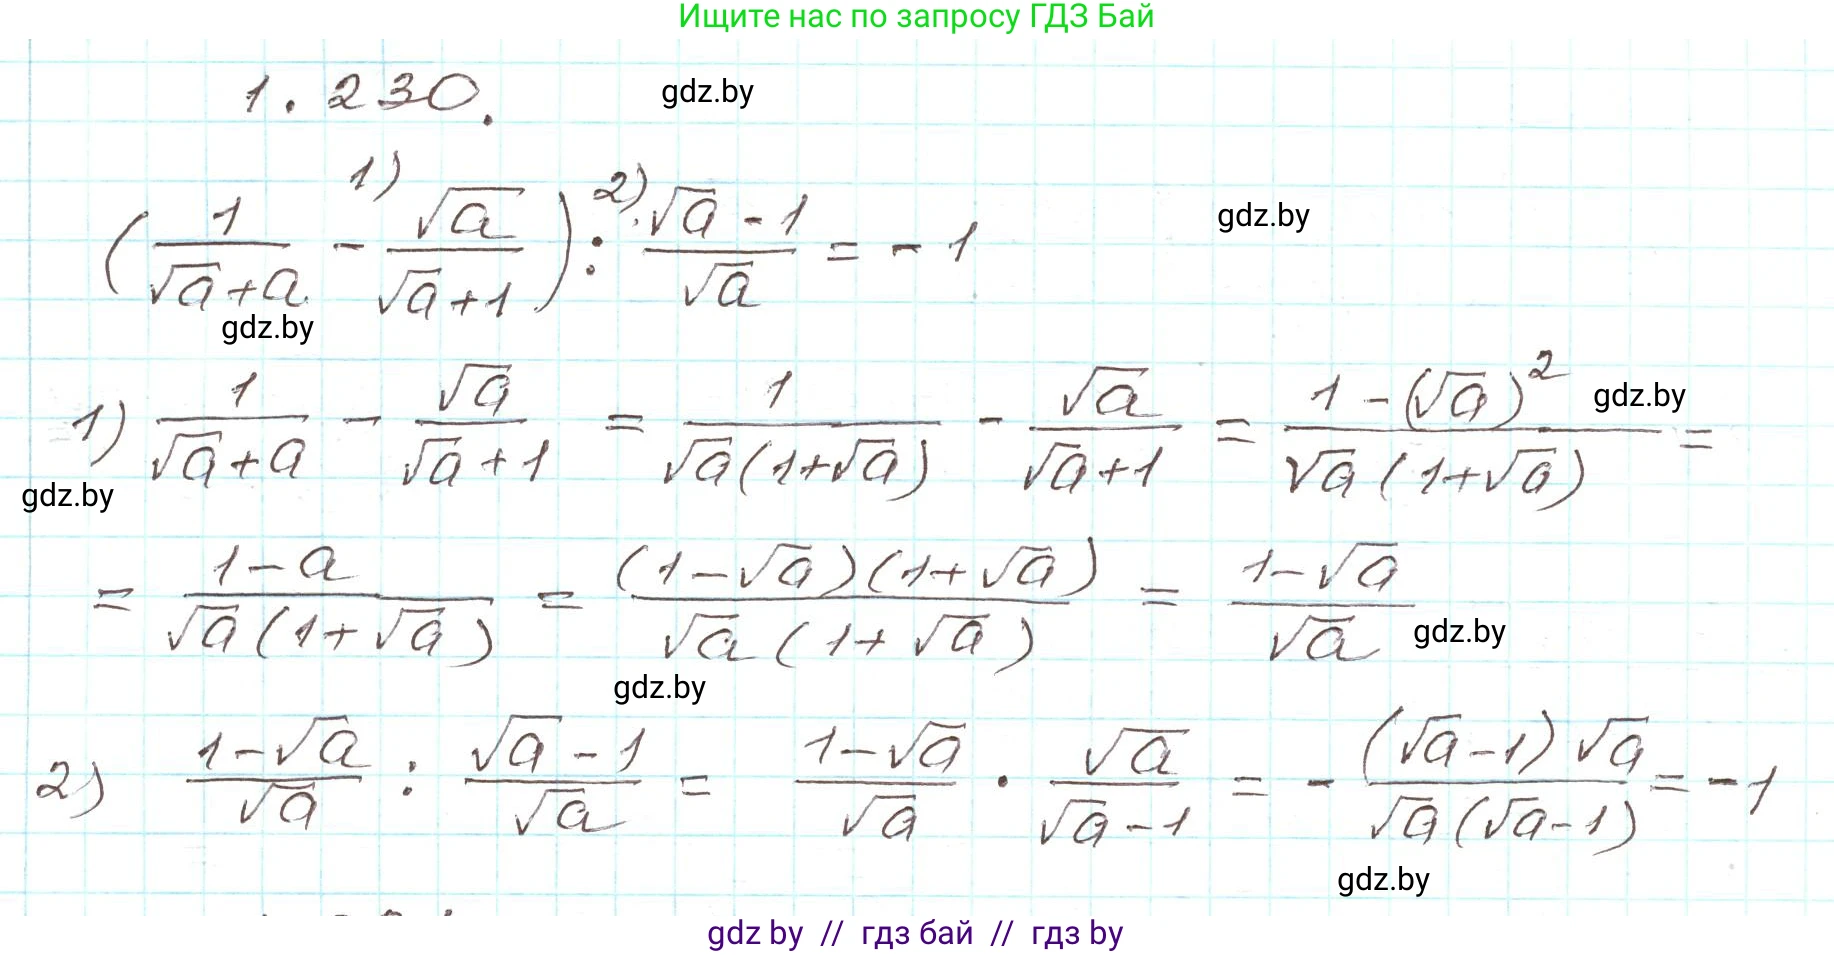 Ищите нас по запросу ГДЗ Бай
1.230.
gdz.by
(1/(√a+a) - √a/(√a+1)) : (√a-1)/√a = -1
1) 2)
gdz.by
gdz.by
1) 1/(√a+a) - √a/(√a+1) = 1/(√a(1+√a)) - √a/(√a+1) = (1-(√a)²)/(√a(1+√a)) =
gdz.by
gdz.by
= (1-a)/(√a(1+√a)) = ((1-√a)(1+√a))/(√a(1+√a)) = (1-√a)/√a
gdz.by
gdz.by
2) (1-√a)/√a : (√a-1)/√a = (1-√a)/√a · √a/(√a-1) = - ((√a-1)√a)/(√a(√a-1)) = -1
gdz.by
gdz by // гдз бай // гдз by